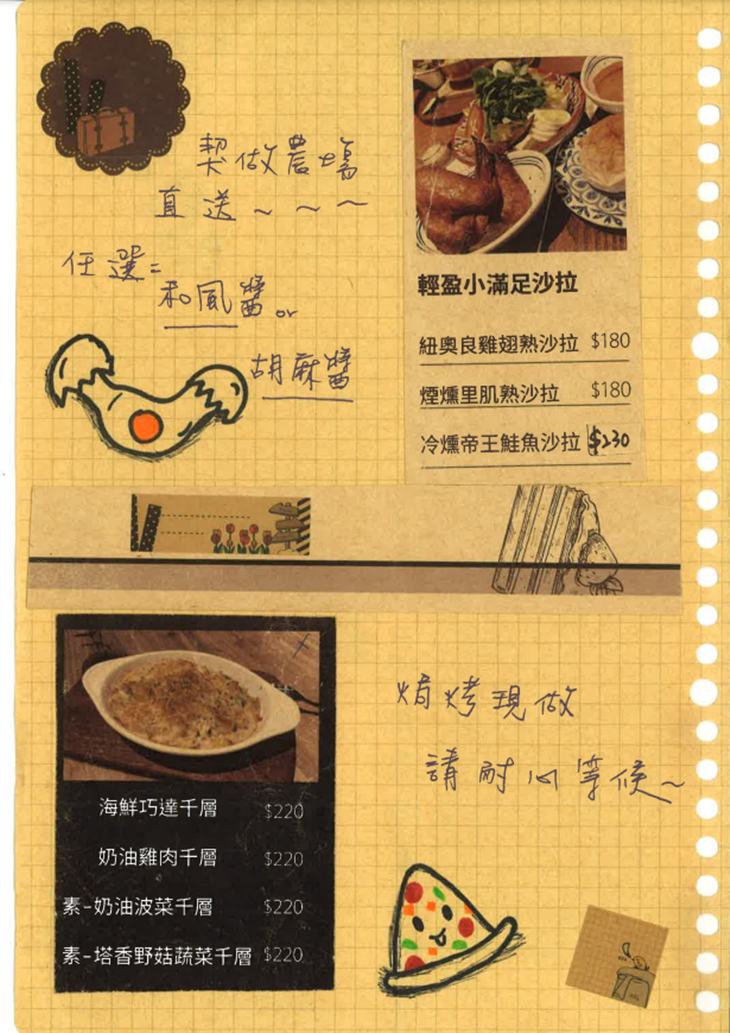 契做農場
直送~~~
任選=
和風醬or
胡麻醬
輕盈小滿足沙拉
紐奧良雞翅熟沙拉 $180
煙燻里肌熟沙拉 $180
冷燻帝王鮭魚沙拉 $230
焗烤現做
請耐心等候~
海鮮巧達千層 $220
奶油雞肉千層 $220
素-奶油波菜千層 $220
素-塔香野菇蔬菜千層 $220